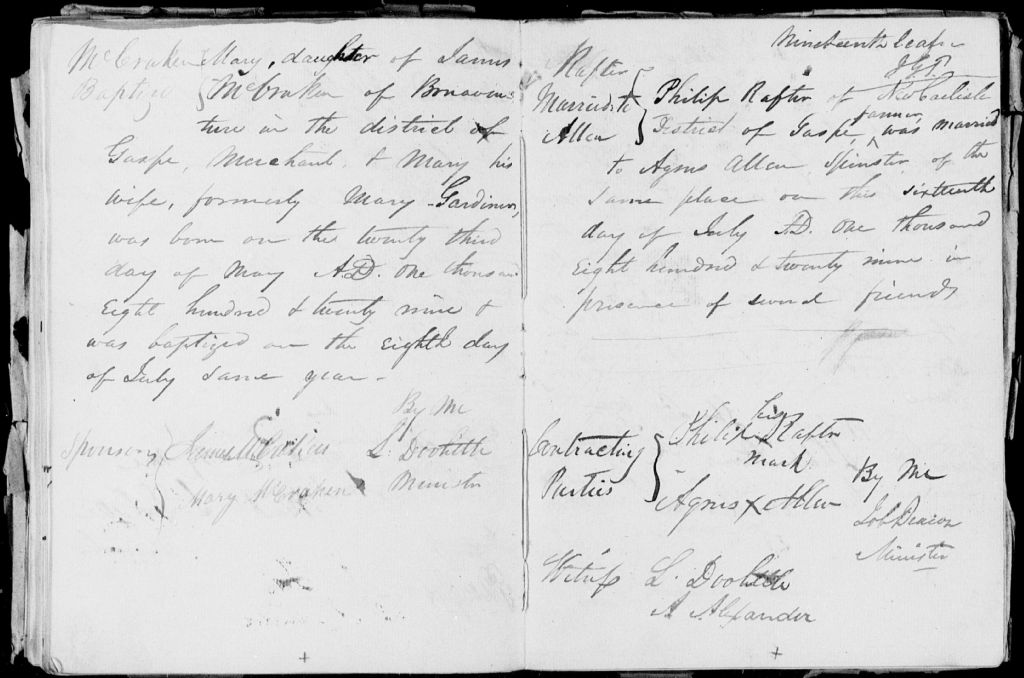 McCraken Mary, daughter of James
Baptized McCraken of Bonaven-
ture in the district of
Gaspe, Merchant & Mary his
wife, formerly Mary Gardiner,
was born on the twenty third
day of May A.D. one thousand
eight hundred & twenty nine &
was baptized on the eighth day
of July same year -
By Me
Sponsors L. Doolittle
Mary McCraken Minister
Nineteenth leaf
Rafter
Married to Philip Rafter of New Carlisle
farmer
Allan District of Gaspe, was married
to Agnes Allan Spinster of the
same place on this sixteenth
day of July A.D. one thousand
eight hundred & twenty nine in
presence of several friends
his
Contracting Philip Rafter
mark
Parties Agnes x Allan
By Me
Job Deacon
Minister
Witness L. Doolittle
A Alexander